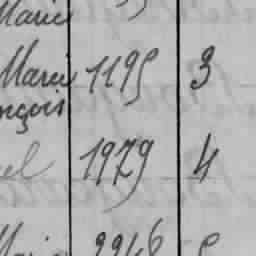 Marie
Marie 1195 3
nçois
el 1979 4
2246